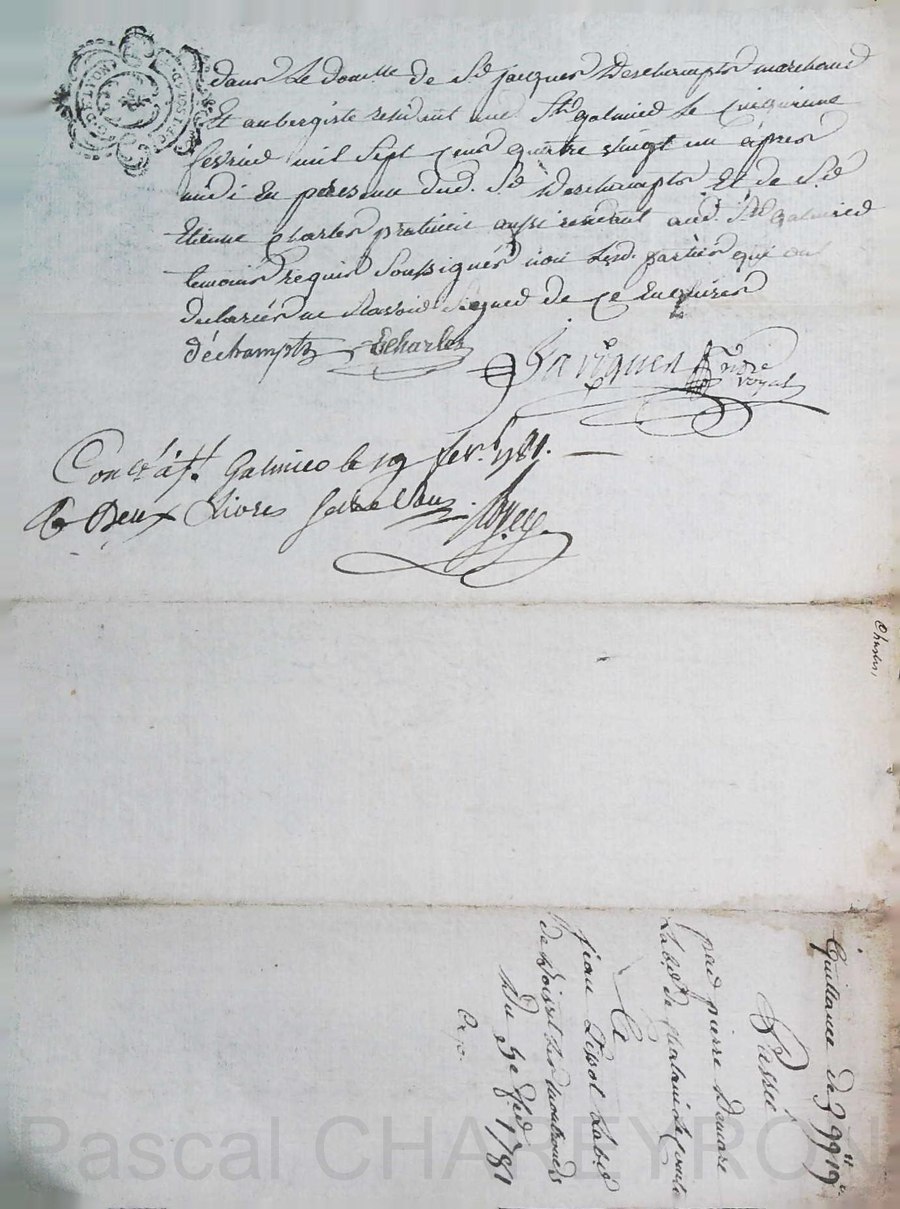 G. DE LYON
dans Le domille de Sr jacques Deschampts marchand
Et aubergiste residant aud St galmier Le Cinquieme
fevrier mil Sept Cens quatre vingt un apres
midi En presence dud. Sr Deschampts Et de Sr
Etienne Charles praticien aussi residant aud. St galmier
temoins requis Soussignés non Lesd. parties qui ont
declarées ne Scavoir Signer de ce Enquises
déchampts ECharles
nore royal
Conlé à St Galmier le 19 fevr. 1781.
R Deux Livres Seize Sous
Charles,
Quittance de 399lt 19s
Passée
par pierre
Labr de
A
jean Labr
de
Du 5e fer 1781
Pascal CHAREYRON